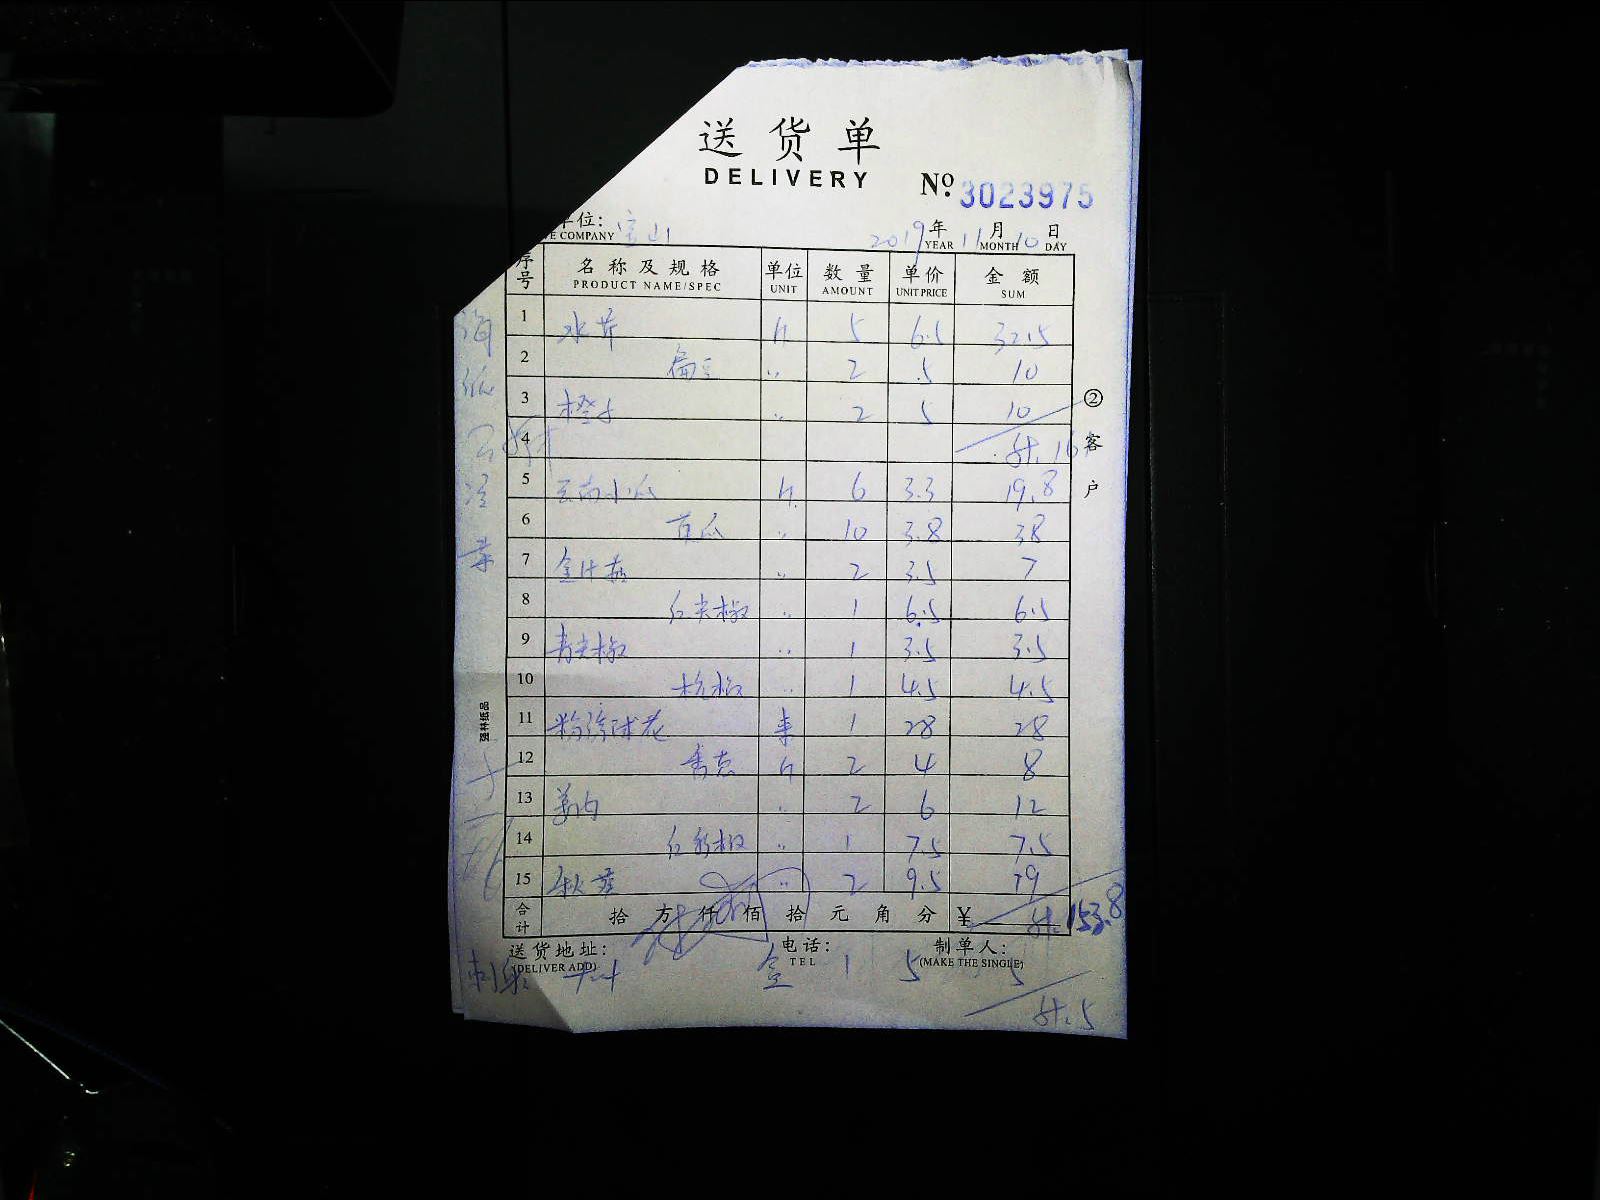 送货单
DELIVERY
№ 3023975
单位: 宝山 2019年 11月 10日
E COMPANY YEAR MONTH DAY
序号 名称及规格 单位 数量 单价 金额
PRODUCT NAME/SPEC UNIT AMOUNT UNIT PRICE SUM
1 水芹 斤 5 6.5 32.5
2 扁豆 〃 2 5 10
3 橙子 〃 2 5 10
4
5 云南小瓜 斤 6 3.3 19.8
6 苦瓜 〃 10 3.8 38
7 金针菇 〃 2 3.5 7
8 红尖椒 〃 1 6.5 6.5
9 青尖椒 〃 1 3.5 3.5
10 杭椒 〃 1 4.5 4.5
11 粉绣球花 束 1 28 28
12 香菜 斤 2 4 8
13 茭白 〃 2 6 12
14 红彩椒 〃 1 7.5 7.5
15 秋葵 〃 2 9.5 19
合计 拾 万 仟 佰 拾 元 角 分 ¥ 计.153.8
送货地址: 电话: 制单人:
(DELIVER ADD) TEL (MAKE THE SINGLE)
盒 1 5 5
计.5
②客户
强林纸品